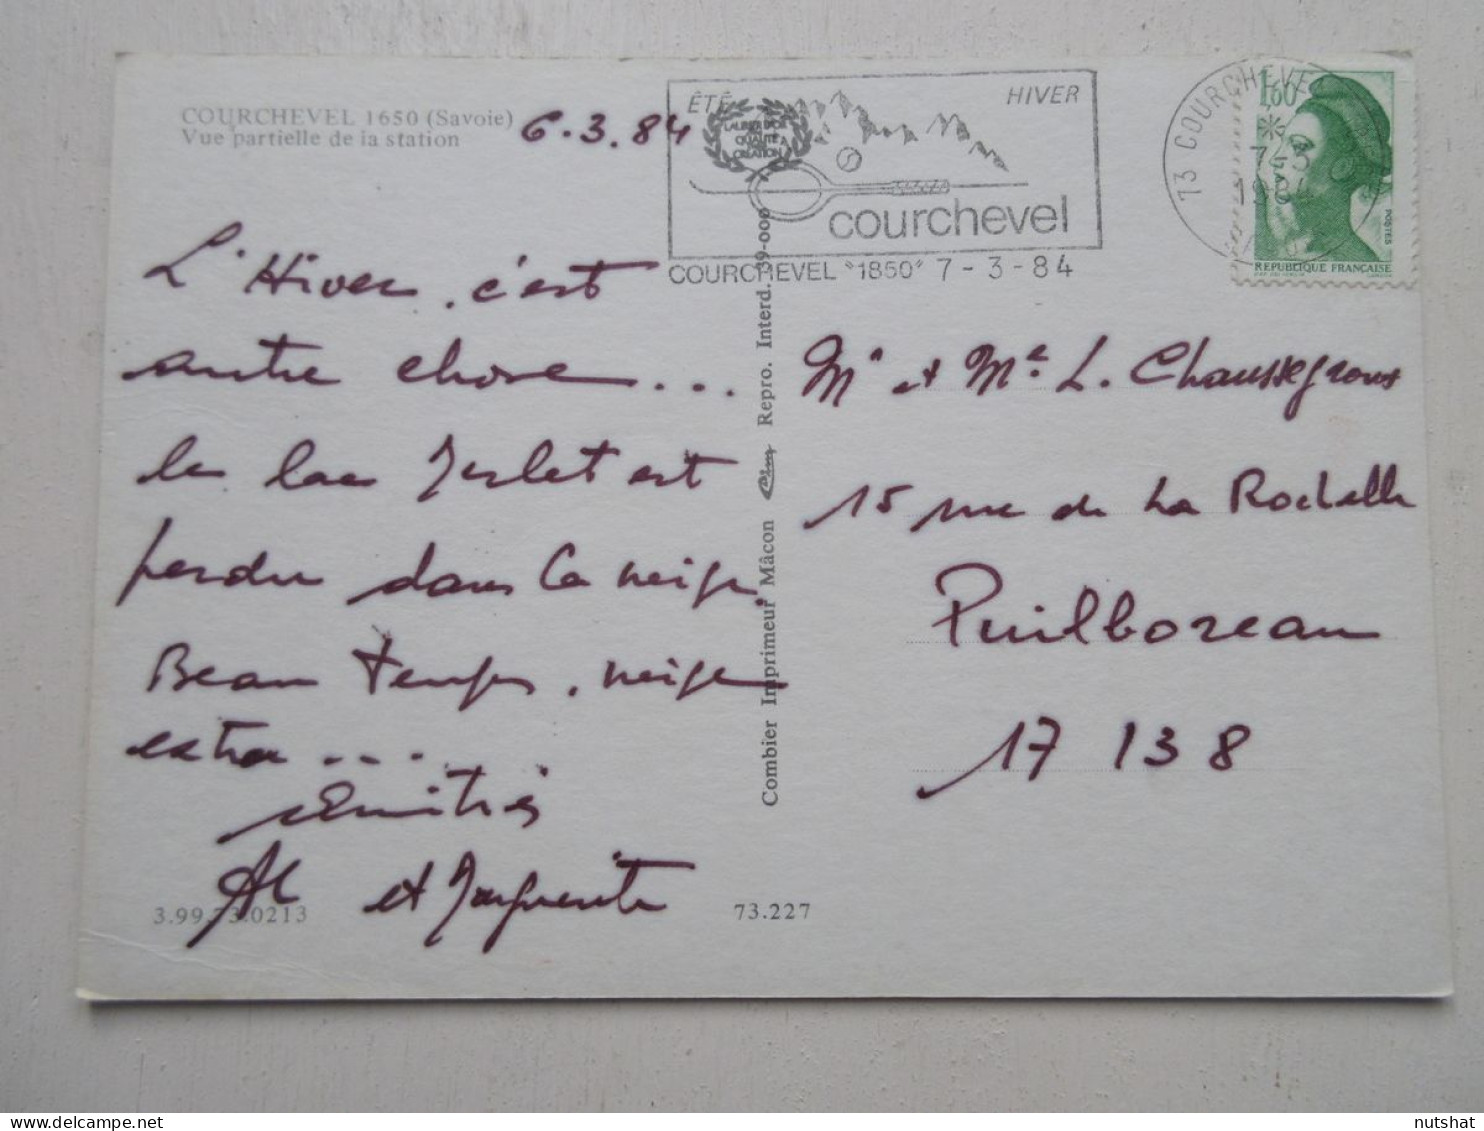 COURCHEVEL 1650 (Savoie)
Vue partielle de la station
6.3.84
L'Hiver, c'est
autre chose...
le lac Merlet est
perdu dans la neige.
Beau temps, neige
extra....
Amitiés
et Marguerite
3.99.73.0213
73.227
Combier Imprimeur Mâcon Cim Repro. Interd. 39-000
ÉTÉ
HIVER
courchevel
COURCHEVEL "1850" 7-3-84
73 COURCHEVEL
7-3
1984
1,60
POSTES
REPUBLIQUE FRANÇAISE
Mr et Me L. Chaussegrous
15 rue de La Rochelle
Puilboreau
17 138
nutshat